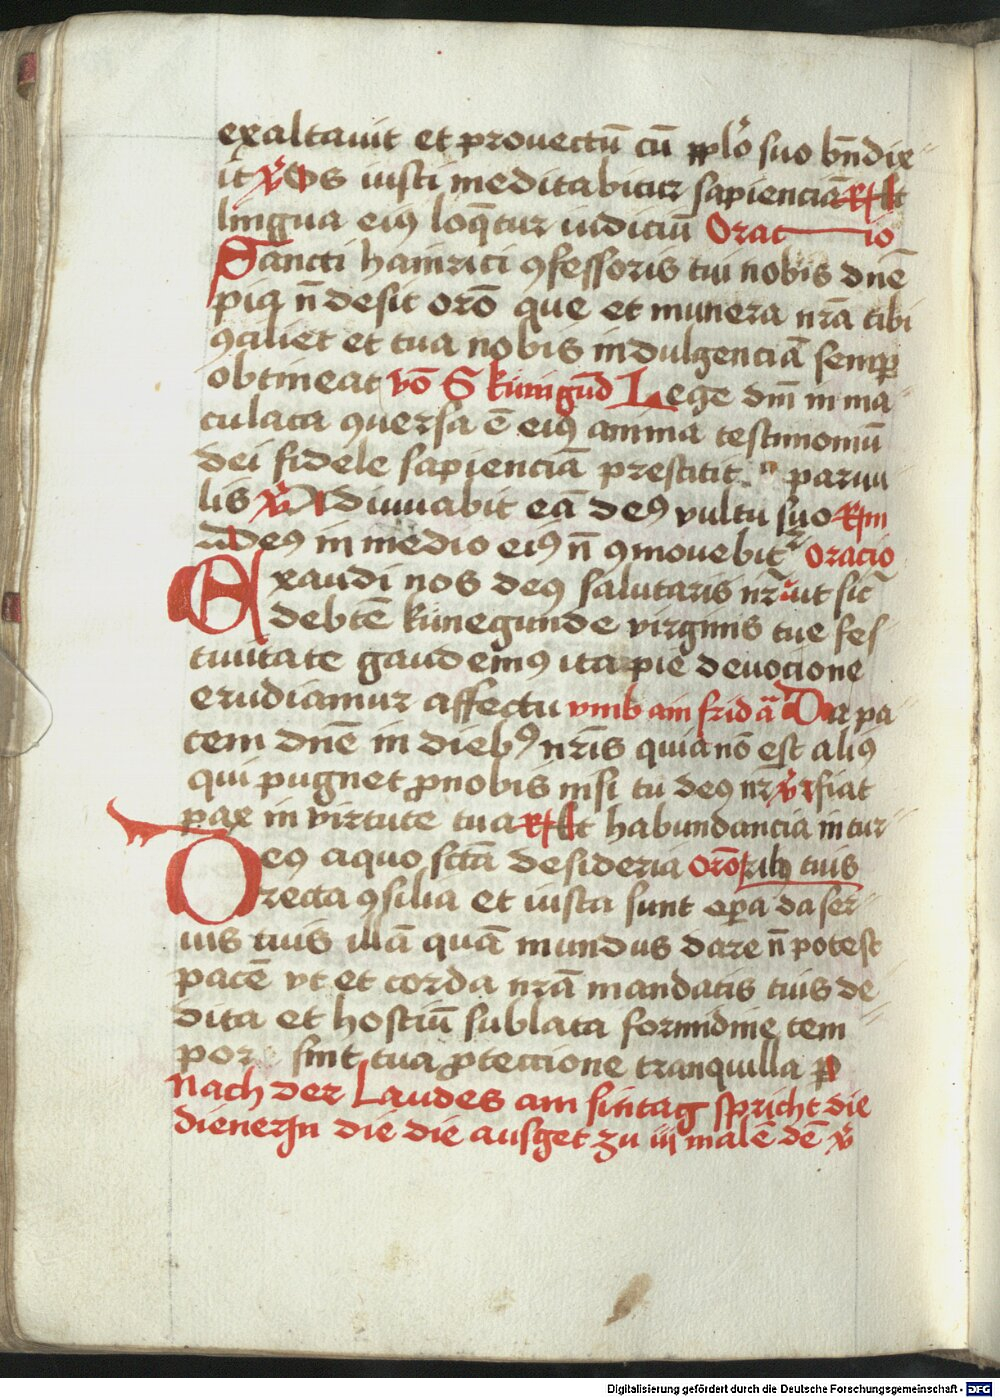 exaltauit et prouectū cū pplō suo bn̄dix
it V̊ Os iusti meditabitur sapienciā R Et
lingua eiꝰ loq̄tur iudiciū Oracio
Sancti hainrici ꝯfessoris tui nobis dnē
piа n̄ desit orō que et munera nr̄a tibi
ꝯciliet et tua nobis indulgenciā semꝑ
obtineat vō S kūnigūd Lege dm̄ in ma
culata ꝯuersa ē eiꝰ amma testimoniū
dei fidele sapienciā prestitit paruu
lis V̊ Adiuuabit eā deꝰ vultu suo R m
deꝰ in medio eiꝰ n̄ ꝯmouebitr Oracio
Exaudi nos deꝰ salutaris nr̄ ut sic̄
de btē kūnegunde virginis tue fes
tiuitate gaudemꝰ ita pie deuocione
erudiamur affectu vmb ain fridā Da pa
cem dnē in diebꝰ nr̄is quia nō est aliꝰ
qui pugnet ꝓ nobis nisi tu deꝰ nr̄ V̊ fiat
pax in virtute tua R Et habundancia in tur
Deꝰ a quo sctā desideria orō ribꝰ tuis
recta ꝯsilia et iusta sunt oꝑa da ser
uis tuis illā quā mundus dare n̄ potest
pacē vt et corda nr̄a mandatis tuis de
dita et hostiū sublata formidine tem
por sint tua ꝓteccione tranquilla ꝑ
nach der Laudes am sintag spricht die
dienerin die die ausget zu iij malē dē V̊